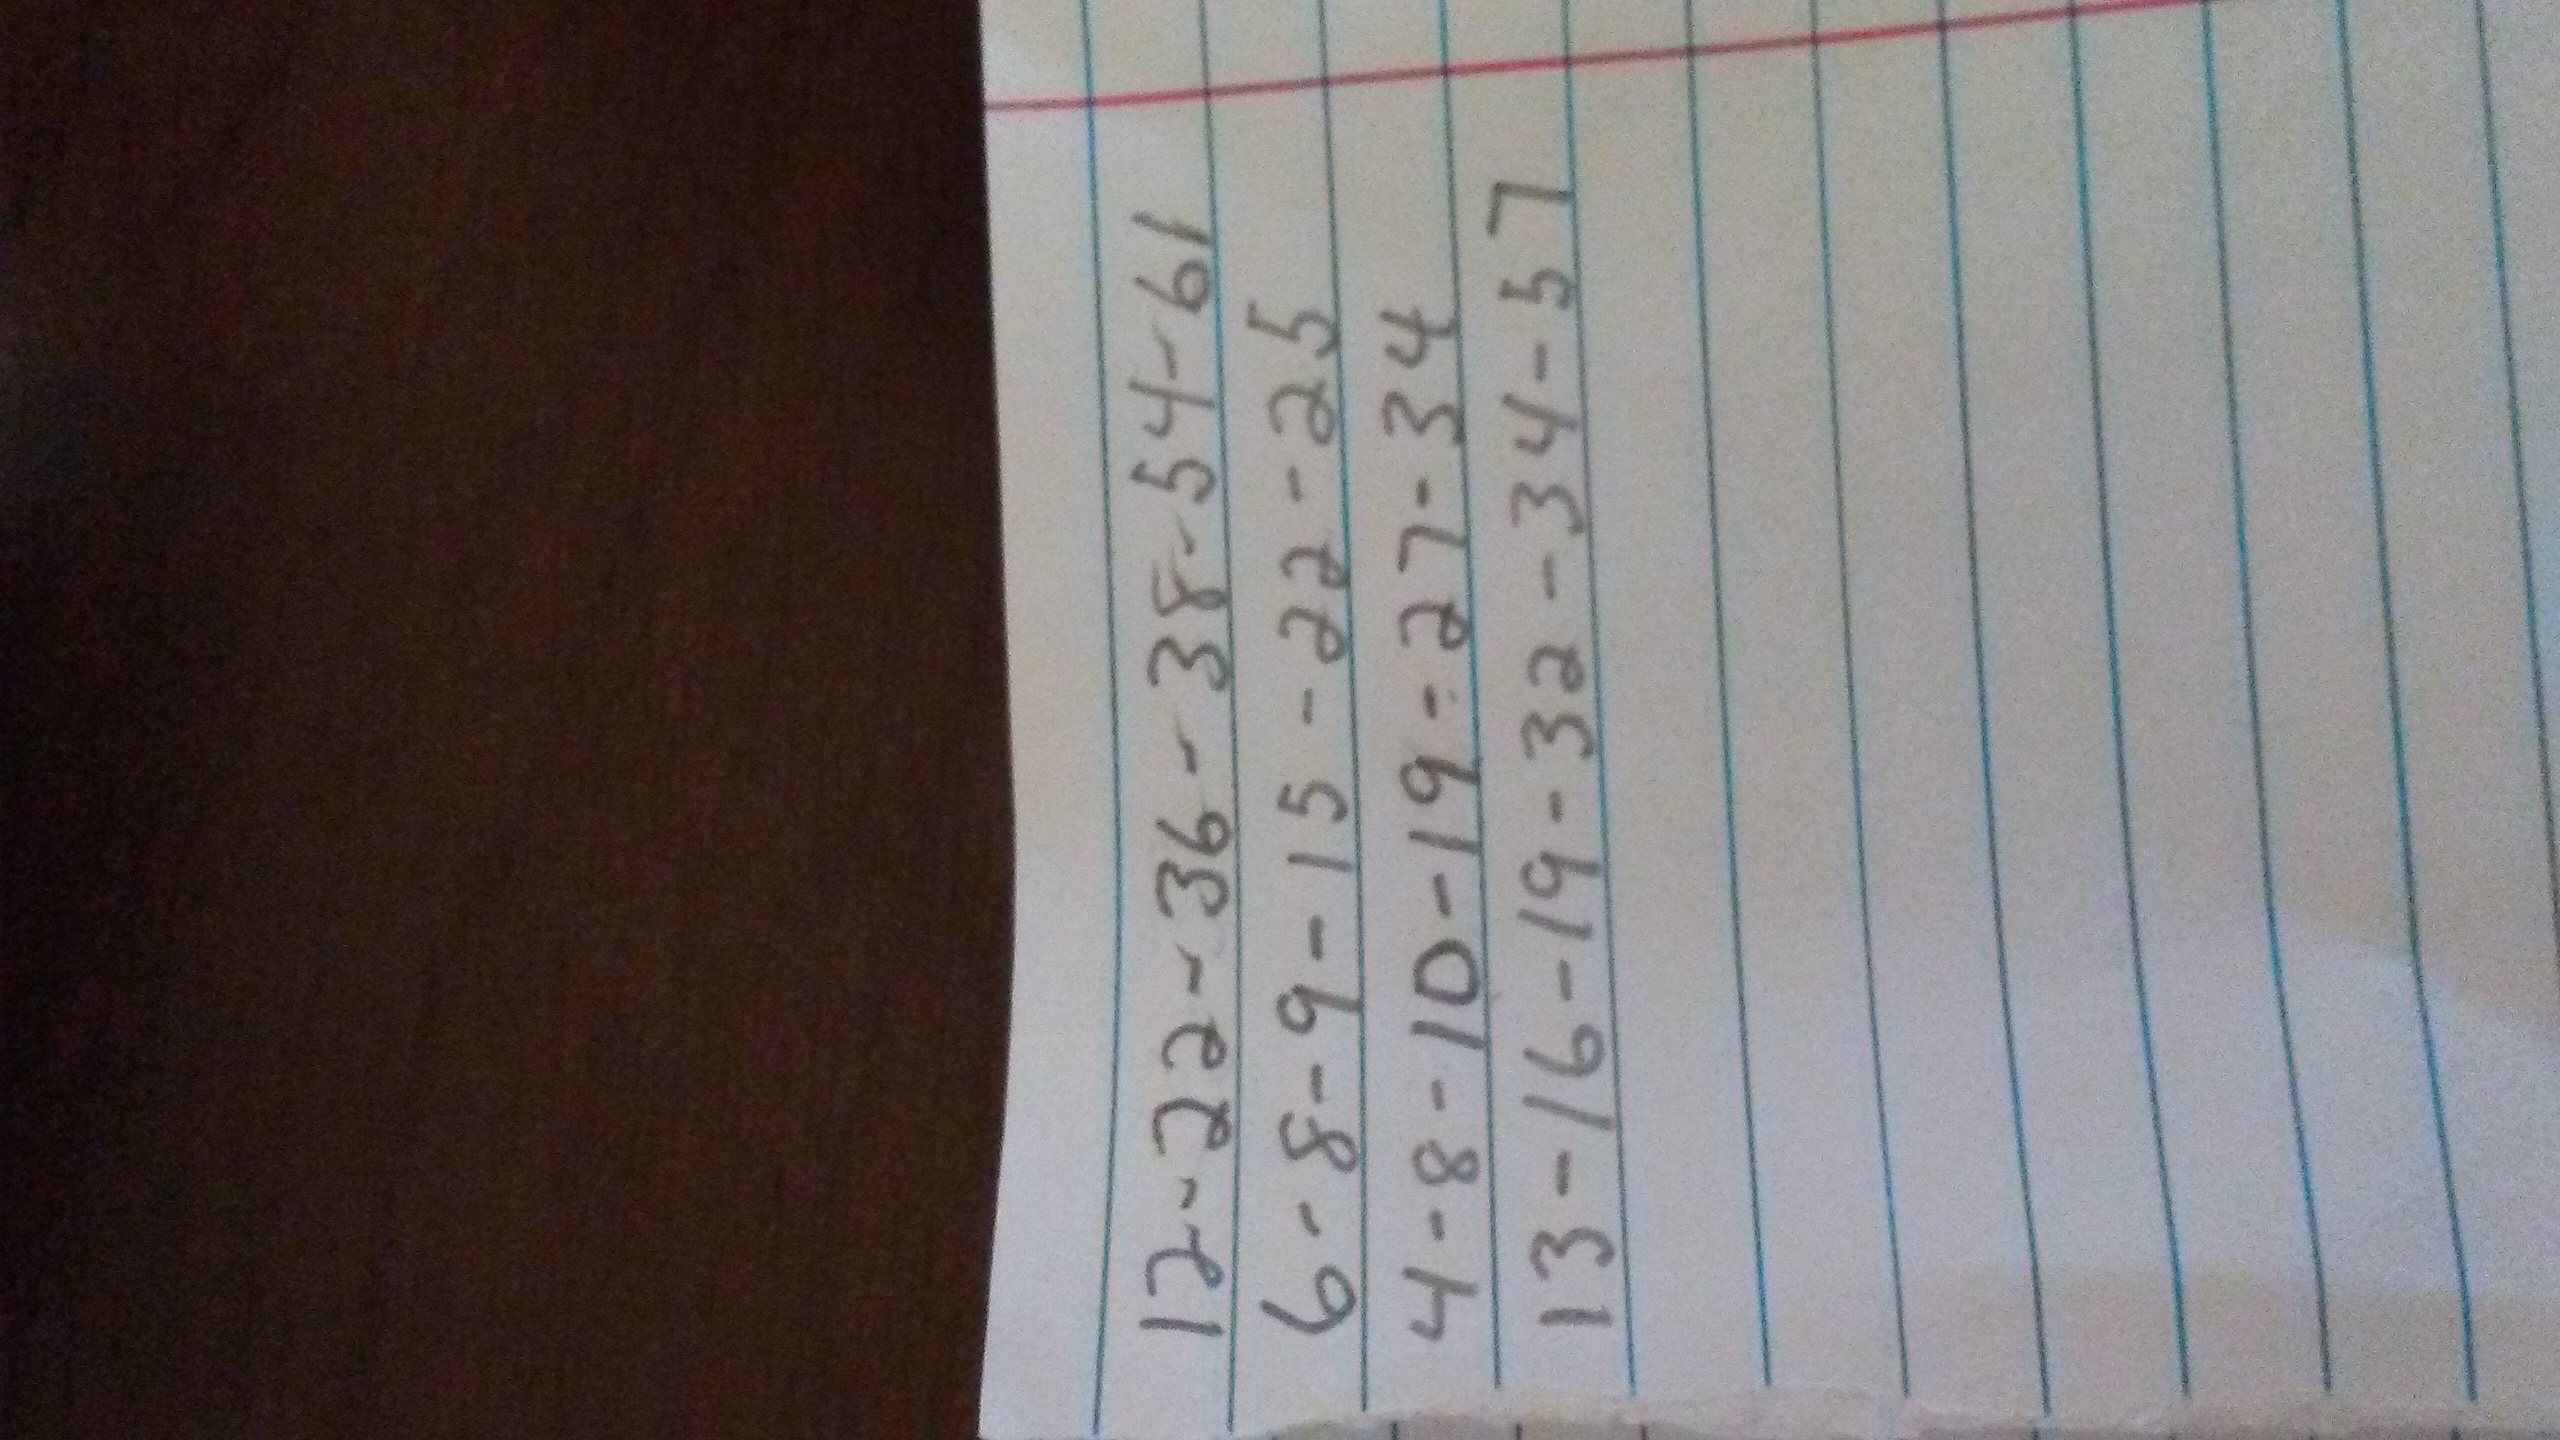 12-22-36-38-54-61
6-8-9-15-22-25
4-8-10-19-27-34
13-16-19-32-34-57